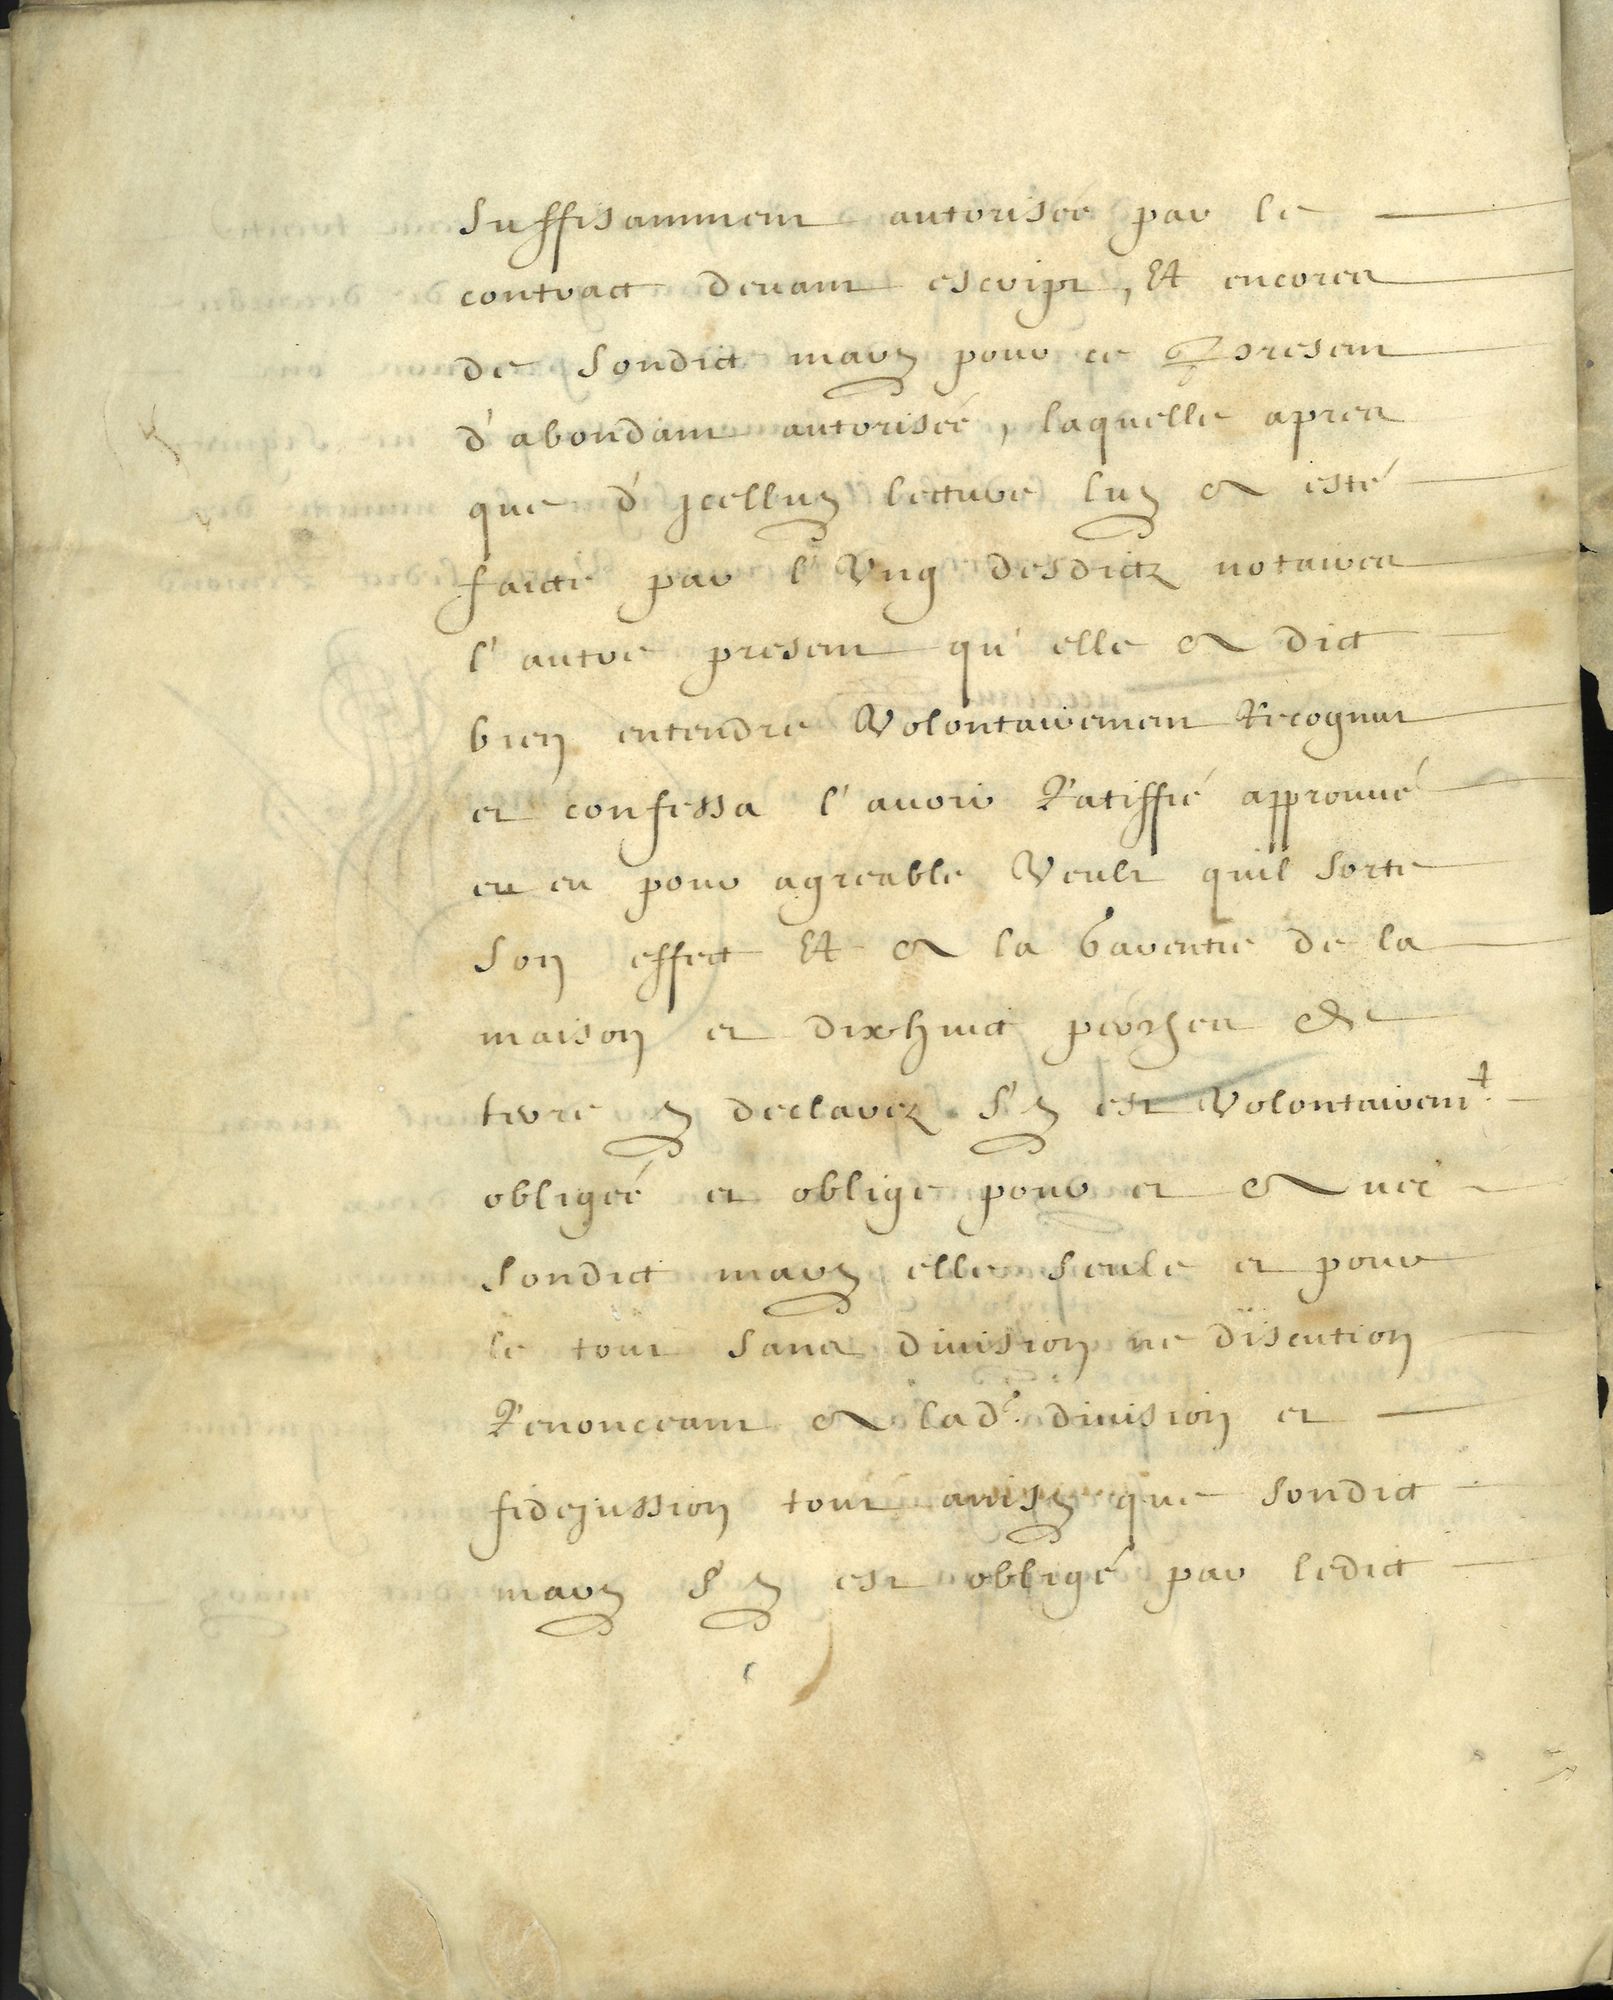 suffisamment autorisée par le
contract devant escript, Et encores
de sondict mary pour ce present
d'abondant autorisée, laquelle apres
que d'jcelluy lecture luy a esté
faicte par l'Ung desdictz notaires
l'autre present qu'elle a dict
bien entendre Volontairement Recognut
et confessa l'avoir Ratiffié approuué
et eu pour agreable Veult quil sorte
son effect Et a la Garentie de la
maison et dixhuict perches de
terre y declarez s'y est Volontairemt
obligée et oblige pour et avec
sondict mary elle seule et pour
le tout sans diuision ne discution
Renonceant a lade diuision et
fidejussion tout ainsy que sondict
mary s'y est obbligé par ledict